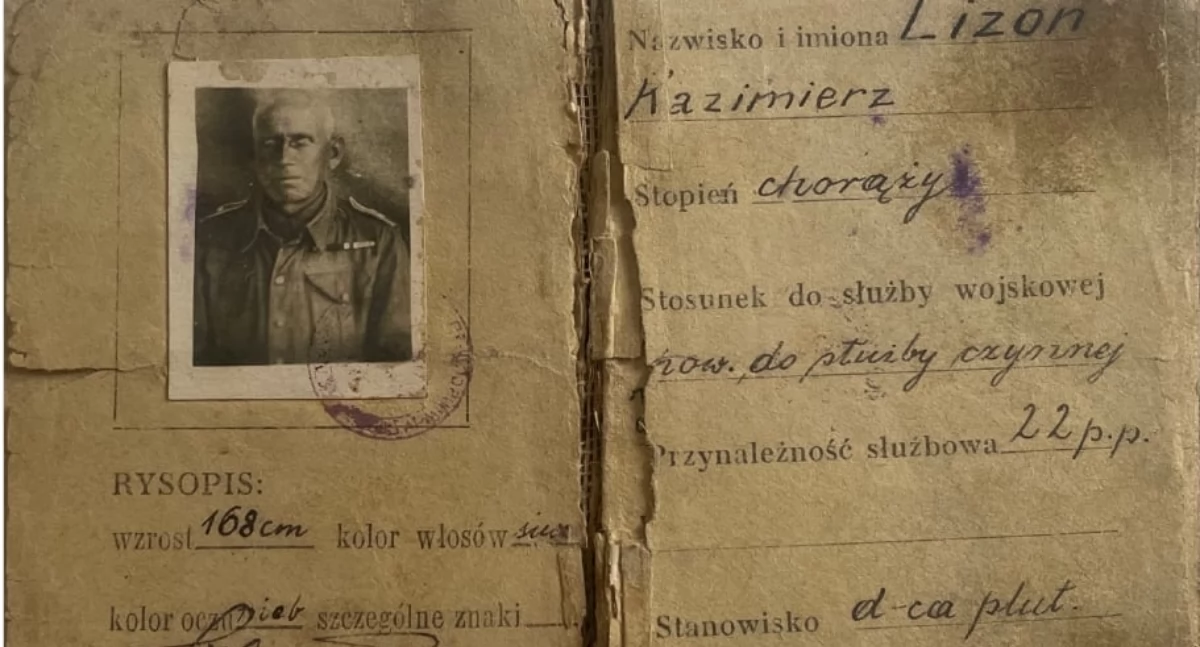 RYSOPIS:
wzrost 168cm kolor włosów siwe
kolor oczu nieb szczególne znaki
Nazwisko i imiona Lizoń
Kazimierz
Stopień chorąży
Stosunek do służby wojskowej
pow. do służby czynnej
Przynależność służbowa 22 p.p.
Stanowisko d-ca plut.